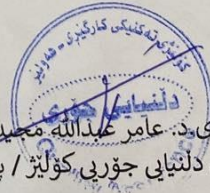 کۆلێژی تەکنیکی کارگێڕی - هەولێر
دڵنیایی جۆری
ی د. عامر عبدالله مجید
دڵنیایی جۆریی کۆلێژ /